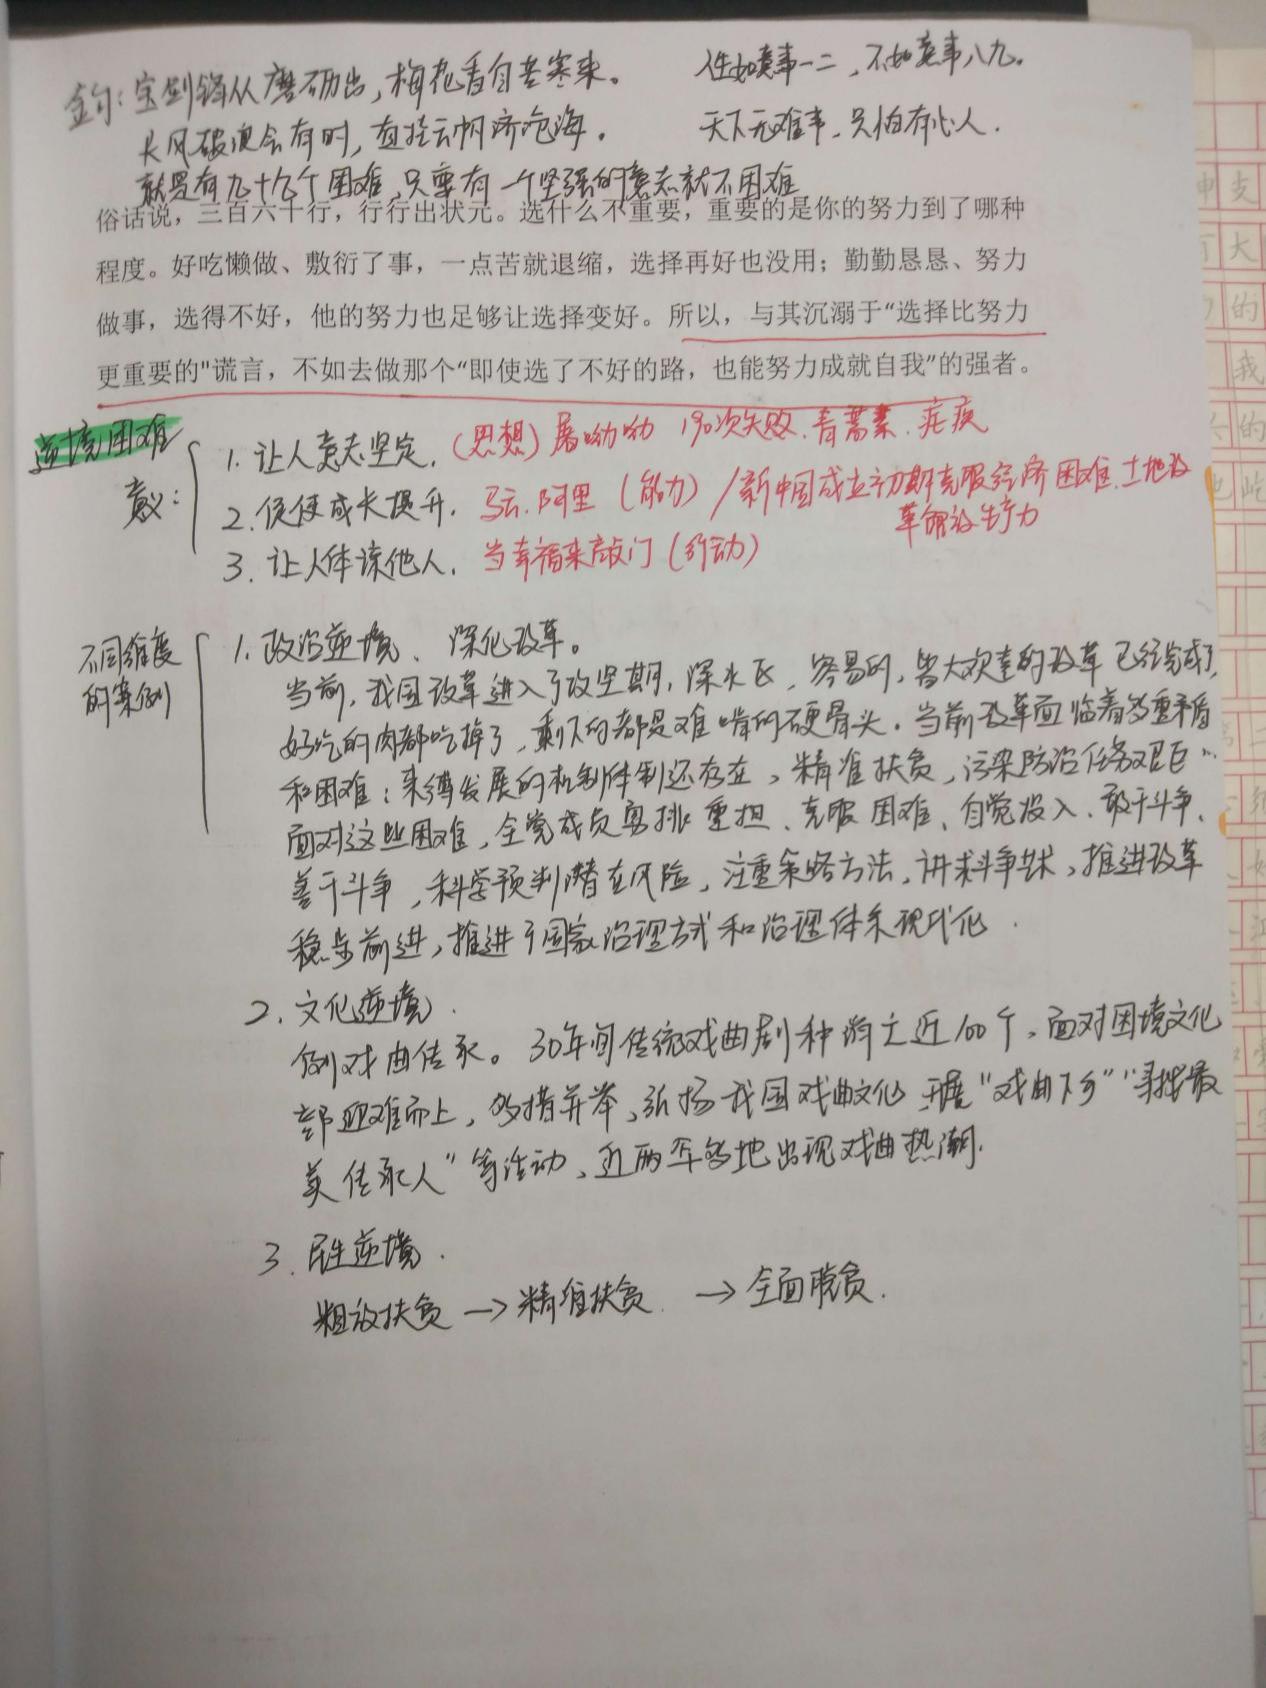 金句：宝剑锋从磨砺出，梅花香自苦寒来。 人生如意事一二，不如意事八九。
长风破浪会有时，直挂云帆济沧海。 天下无难事，只怕有心人.
就是有九十九个困难，只要有一个坚强的意志就不困难
俗话说，三百六十行，行行出状元。选什么不重要，重要的是你的努力到了哪种
程度。好吃懒做、敷衍了事，一点苦就退缩，选择再好也没用；勤勤恳恳、努力
做事，选得不好，他的努力也足够让选择变好。所以，与其沉溺于“选择比努力
更重要的"谎言，不如去做那个“即使选了不好的路，也能努力成就自我”的强者。
逆境困难
意义：
1. 让人意志坚定. （思想）屠呦呦 190次失败. 青蒿素. 疟疾
2. 促使成长提升. 马云. 阿里（能力）/新中国成立初期克服经济困难. 土地改
革解放生产力
3. 让人体谅他人. 当幸福来敲门（行动）
不同维度
的案例
1. 政治逆境、深化改革。
当前，我国改革进入了攻坚期，深水区，容易的，皆大欢喜的改革已经完成了，
好吃的肉都吃掉了，剩下的都是难啃的硬骨头. 当前改革面临着多重矛盾
和困难：束缚发展的机制体制还存在，精准扶贫，污染防治任务艰巨…
面对这些困难，全党成员勇挑重担、克服困难、自觉投入、敢于斗争、
善于斗争，科学预判潜在风险，注重策略方法，讲求斗争艺术，推进改革
稳步前进，推进了国家治理方式和治理体系现代化.
2. 文化逆境.
例戏曲传承。30年间传统戏曲剧种消亡近100个，面对困境文化
部迎难而上，多措并举，弘扬我国戏曲文化 开展“戏曲下乡”“寻找最
美传承人”等活动，近两年多地出现戏曲热潮.
3. 民生逆境.
粗放扶贫 → 精准扶贫. → 全面脱贫.